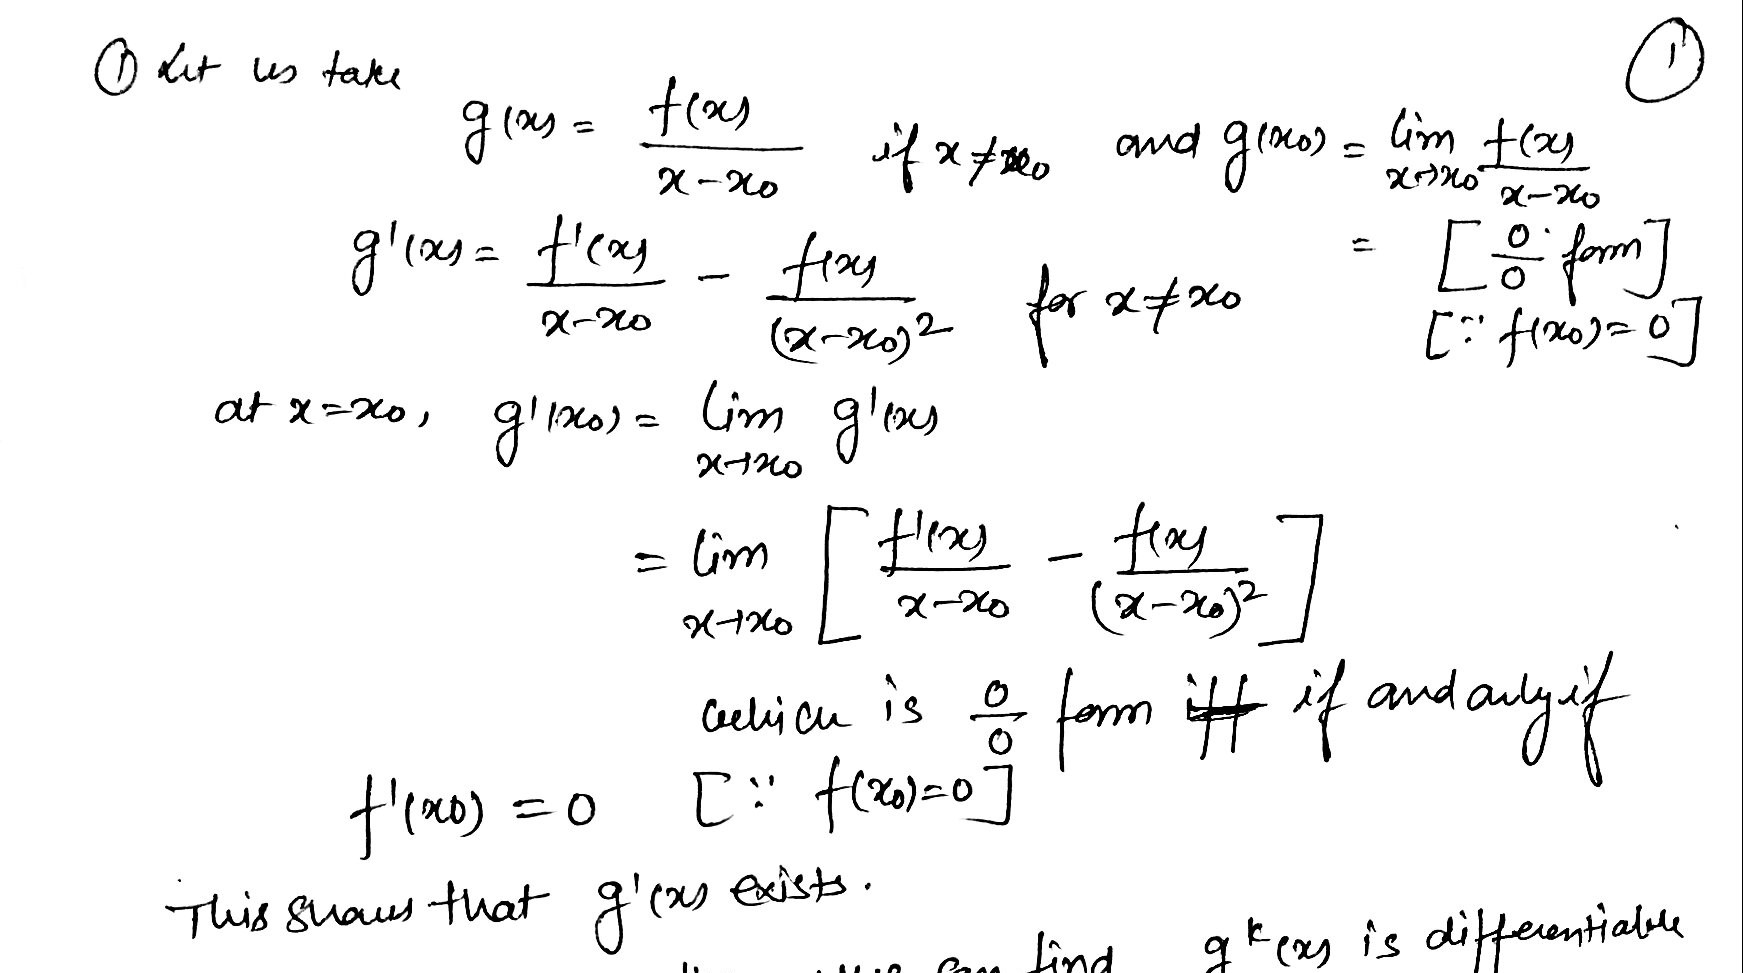 ① Let us take
①
g(x) = f(x)/(x-x₀) if x≠x₀ and g(x₀) = lim x→x₀ f(x)/(x-x₀)
= [0/0 form]
g'(x) = f'(x)/(x-x₀) - f(x)/(x-x₀)² for x≠x₀
[∵ f(x₀)=0]
at x=x₀, g'(x₀) = lim x→x₀ g'(x)
= lim x→x₀ [f'(x)/(x-x₀) - f(x)/(x-x₀)²]
which is 0/0 form if and only if
f'(x₀) = 0 [∵ f(x₀)=0]
This shows that g'(x) exists.
can find gᵏ(x) is differentiable